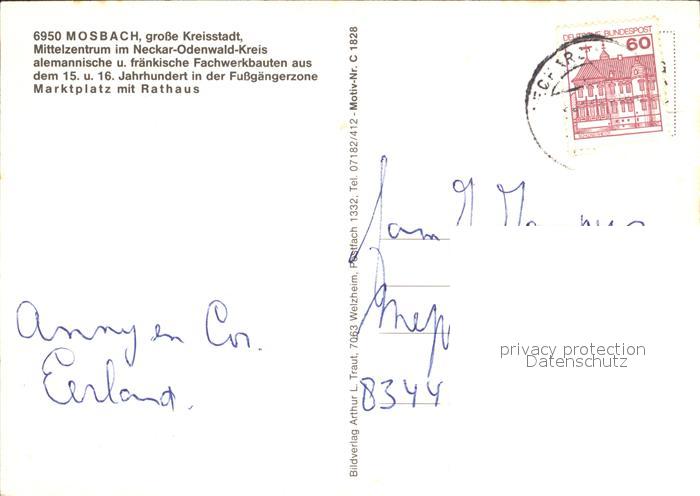 6950 MOSBACH, große Kreisstadt,
Mittelzentrum im Neckar-Odenwald-Kreis
alemannische u. fränkische Fachwerkbauten aus
dem 15. u. 16. Jahrhundert in der Fußgängerzone
Marktplatz mit Rathaus
Bildverlag Arthur L. Traut, 7063 Welzheim, Postfach 1332, Tel. 07182/412 - Motiv-Nr. C 1828
DEUTSCHE BUNDESPOST
60
Fam
8344
Anny en Cor.
Eerland.
privacy protection
Datenschutz